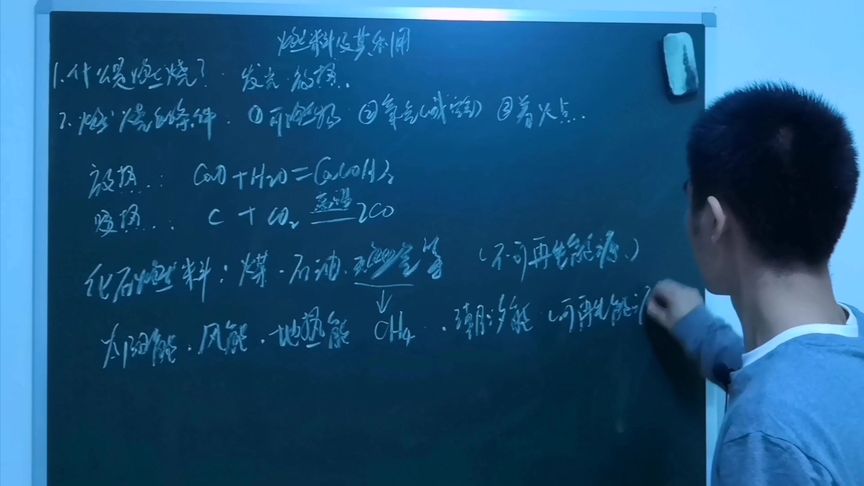 燃料及其利用
1.什么是燃烧? 发光.放热.
2.燃烧的条件. ①可燃物 ②氧气(或空气) ③着火点..
放热... CaO+H2O=Ca(OH)2
吸热... C+CO2 高温 2CO
化石燃料:煤.石油.天然气等 (不可再生能源.)
太阳能.风能.地热能 CH4 ..潮汐能.(可再生能源